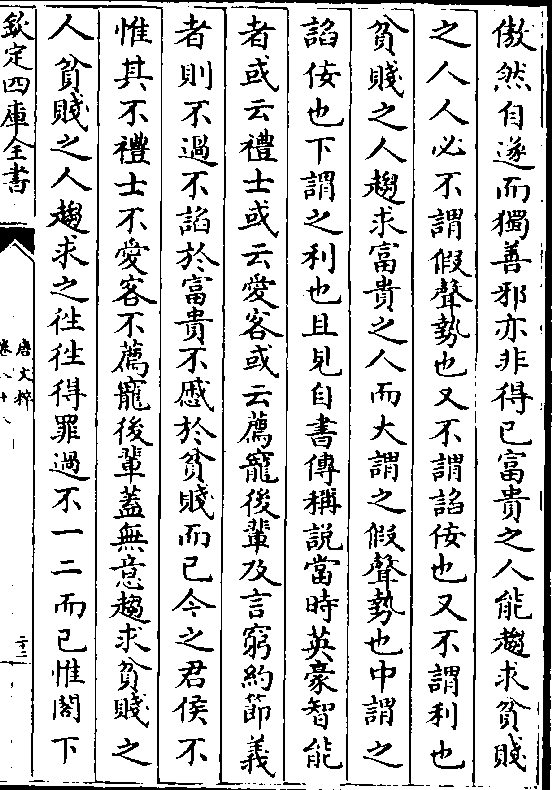 傲然自遂而獨善邪亦非得已富貴之人能趨求貧賤
之人人必不謂假聲勢也又不謂諂佞也又不謂利也
貧賤之人趨求富貴之人而大謂之假聲勢也中謂之
諂佞也下謂之利也且見自書傳稱説當時英豪智能
者或云禮士或云愛客或云薦寵後輩及言窮約節義
者則不過不諂於富貴不慼於貧賤而已今之君侯不
惟其不禮士不愛客不薦寵後輩葢無意趨求貧賤之
人貧賤之人趨求之徃徃得罪過不一二而已惟閣下
欽定四庫全書
唐文粹
卷八十
二十二